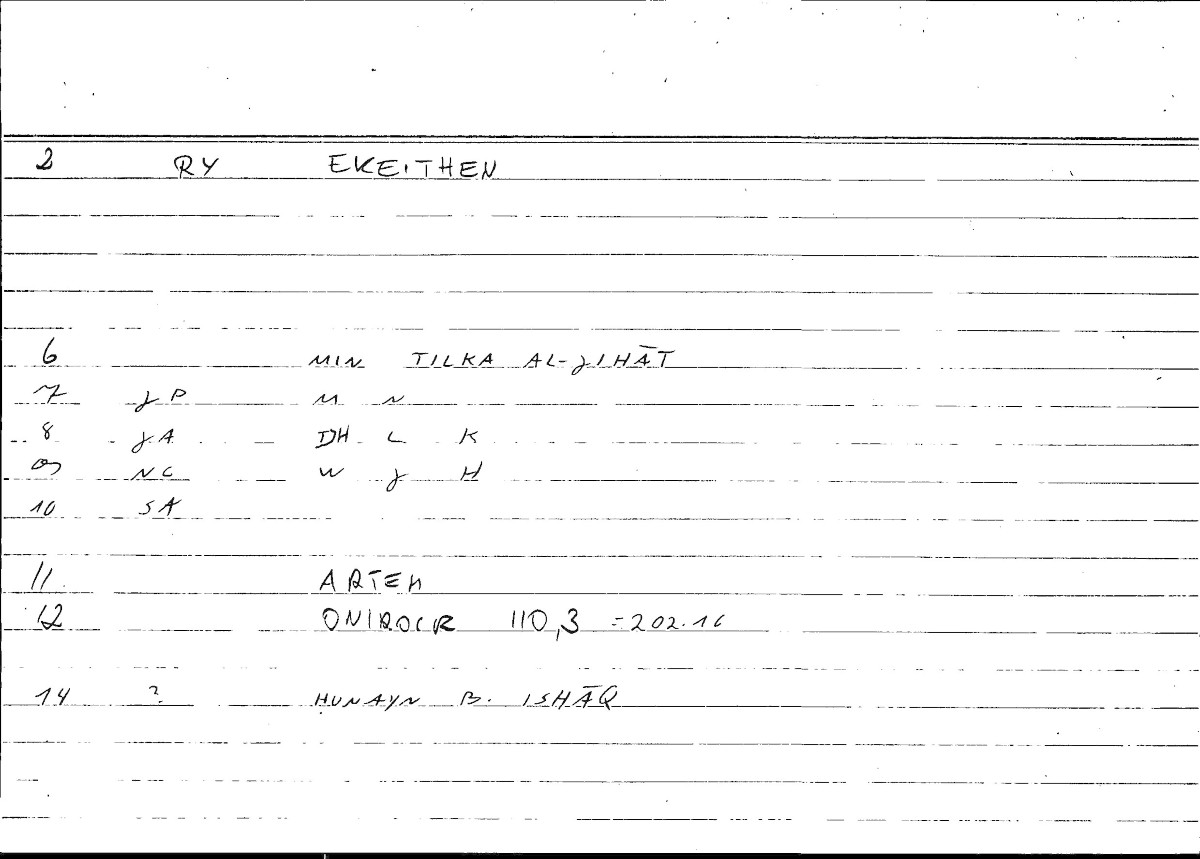 2 RY EKEITHEN
6 MIN TILKA AL-JIHĀT
7 JP M N
8 JA DH L K
9 NC W J H
10 SA
11 ARTEM
12 ONIROCR 110,3 =202.16
14 ? ḤUNAYN B. ISHĀQ